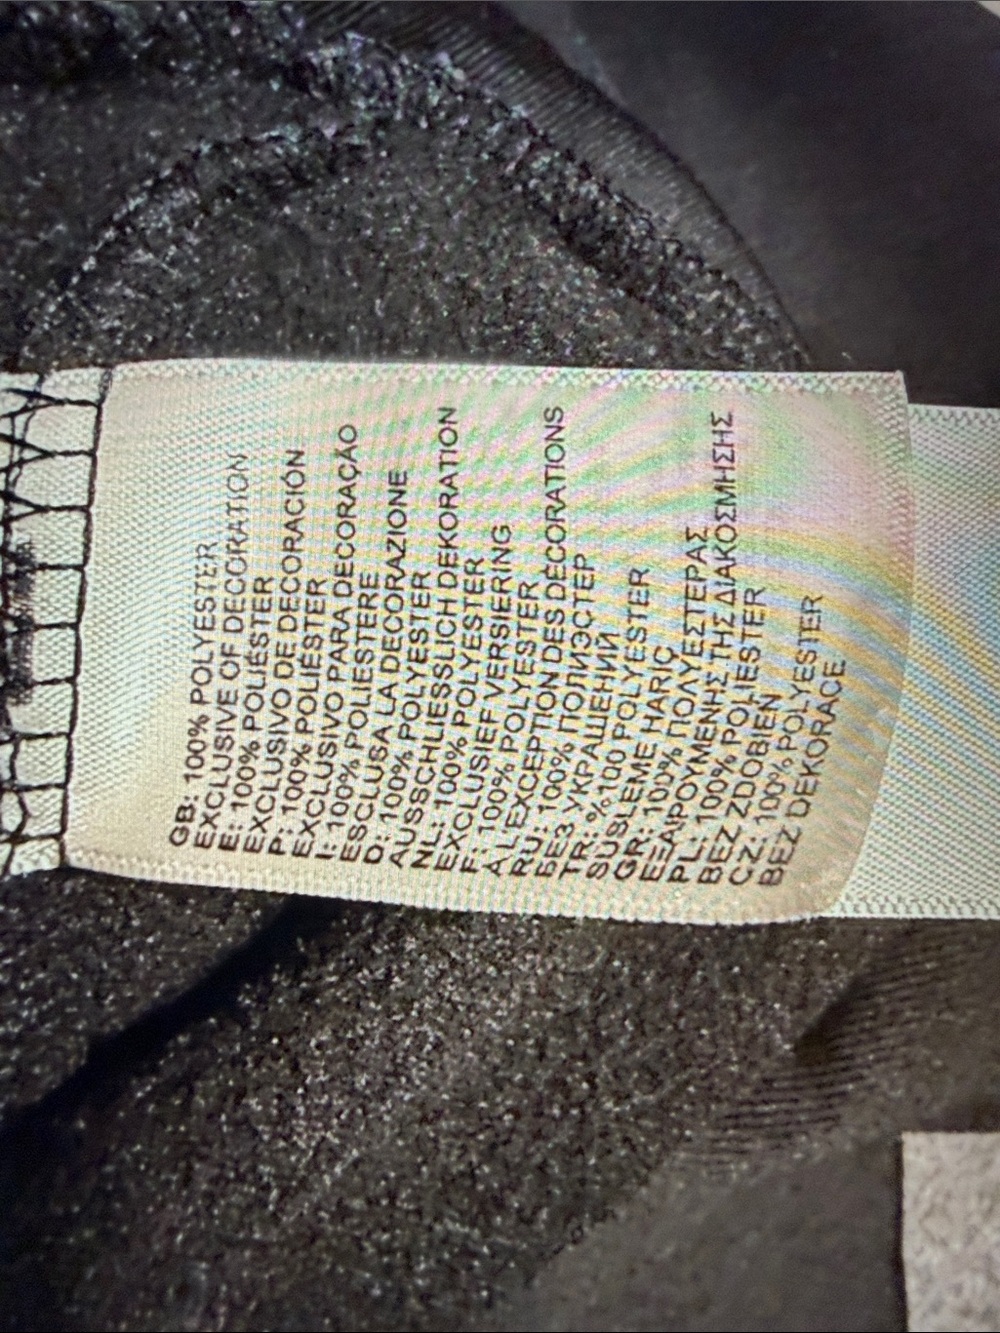 GB: 100% POLYESTER
EXCLUSIVE OF DECORATION
E: 100% POLIÉSTER
EXCLUSIVO DE DECORACIÓN
P: 100% POLIÉSTER
EXCLUSIVO PARA DECORAÇÃO
I: 100% POLIESTERE
ESCLUSA LA DECORAZIONE
D: 100% POLYESTER
AUSSCHLIESSLICH DEKORATION
NL: 100% POLYESTER
EXCLUSIEF VERSIERING
F: 100% POLYESTER
A L'EXCEPTION DES DECORATIONS
RU: 100% ПОЛИЭСТЕР
БЕЗ УКРАШЕНИЙ
TR: %100 POLYESTER
SUSLEME HARIÇ
GR: 100% ΠΟΛΥΕΣΤΕΡΑΣ
ΕΞΑΙΡΟΥΜΕΝΗΣ ΤΗΣ ΔΙΑΚΟΣΜΗΣΗΣ
PL: 100% POLIESTER
BEZ ZDOBIEN
CZ: 100% POLYESTER
BEZ DEKORACE